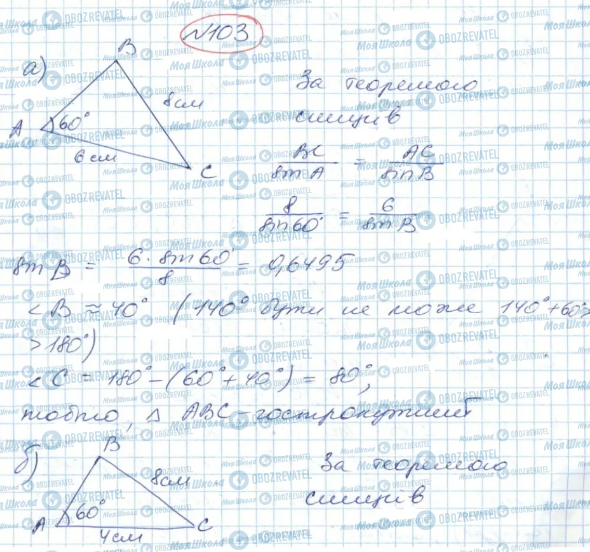 №103
а)
B
8см
A
60°
6 см
C
За теоремою
синусів
BC/sin A = AC/sin B
8/sin60° = 6/sin B
sin B = 6·sin60°/8 = 0,6495
<B ≈ 40° (140° бути не може 140°+60°>
>180°)
<C = 180°-(60°+40°) = 80°,
тобто, △ ABC - гострокутний
б)
B
8см
A
60°
4см
C
За теоремою
синусів
Моя Школа
OBOZREVATEL